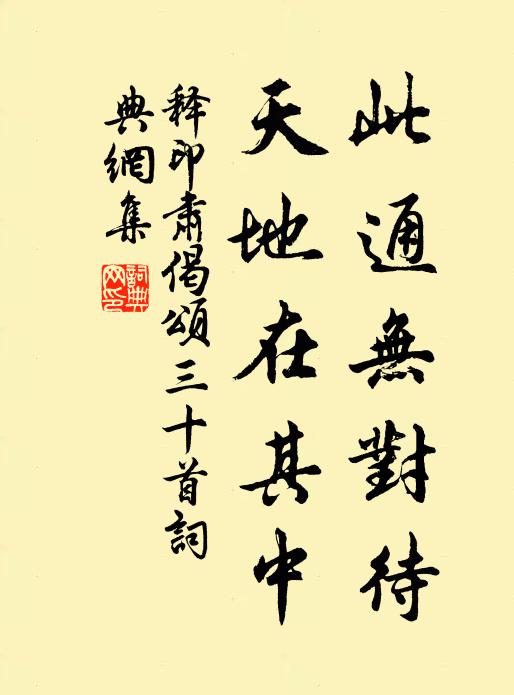 此通無對待
天地在其中
釋印肅偈頌三十首詞
典網集
詞典
网印